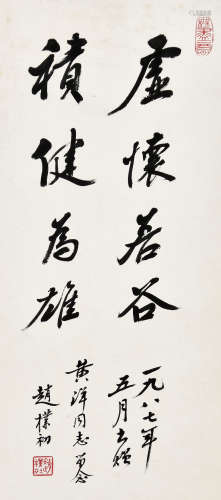 虛懷若谷
積健為雄
一九八七年
五月書贈
黃洋同志留念
趙樸初